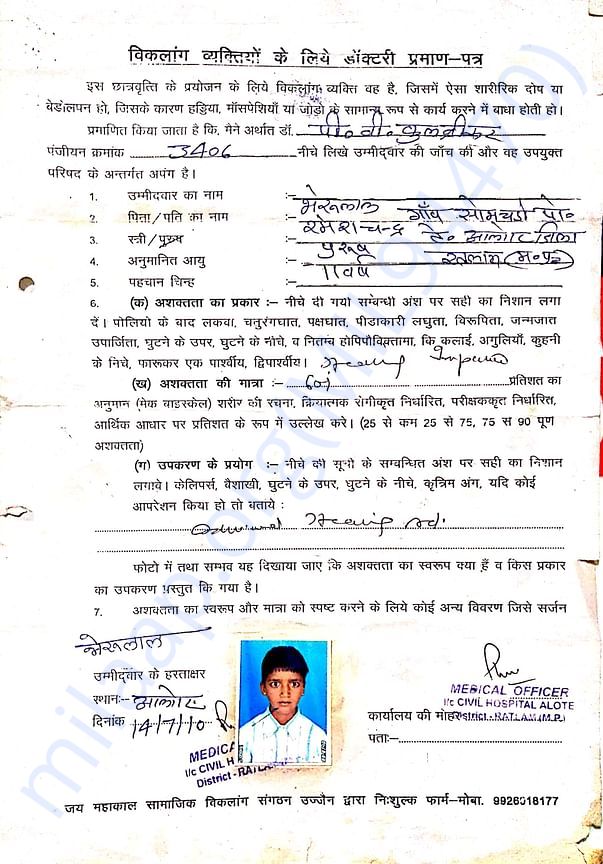 विकलांग व्यक्तियों के लिये डॉक्टरी प्रमाण-पत्र
इस छात्रवृत्ति के प्रयोजन के लिये विकलांग व्यक्ति वह है, जिसमें ऐसा शारीरिक दोष या
बेडोलपन हो, जिसके कारण हड्डिया, माँसपेशियाँ या जोड़ो के सामान्य रूप से कार्य करने में बाधा होती हो।
प्रमाणित किया जाता है कि, मैने अर्थात डॉ. पी० वी०
पंजीयन क्रमांक 3406 नीचे लिखे उम्मीदवार की जाँच की और वह उपयुक्त
परिषद के अन्तर्गत अपंग है।
1. उम्मीदवार का नाम :- भेरूलाल गाँव सोमचडी पो०
2. पिता / पति का नाम :- रमेशचन्द्र ते० आलोट जिला
3. स्त्री / पुरूष :- पुरूष रतलाम (म०प्र०)
4. अनुमानित आयु :- 11 वर्ष
5. पहचान चिन्ह :-
6. (क) अशक्तता का प्रकार :- नीचे दी गयी सम्बन्धी अंश पर सही का निशान लगा
दें। पोलियो के बाद लकवा, चतुरंगघात, पक्षघात, पीडाकारी लघुता, विरूपिता, जन्मजात
उपार्जिता, घुटने के उपर, घुटने के नीचे, व नितम्ब होपिपौविक्तामा, कि कलाई, अगुलियाँ, कुहनी
के निचे, फारूकर एक पार्श्वीय, द्विपार्श्वीय। Hearing Impaired
(ख) अशक्तता की मात्रा :- प्रतिशत का
अनुमान (मेक बाडस्केल) शरीर की रचना, क्रियात्मक रोगीकृत निर्धारित, परीक्षककृत निर्धारित,
आर्थिक आधार पर प्रतिशत के रूप में उल्लेख करे। (25 से कम 25 से 75, 75 स 90 पूण
अशक्तता)
(ग) उपकरण के प्रयोग :- नीचे की सूची के सम्बन्धित अंश पर सही का निशान
लगावे। केलिपर्स, वैशाखी, घुटने के उपर, घुटने के नीचे, कृत्रिम अंग, यदि कोई
आपरेशन किया हो तो बताये :
Hearing Aid.
फोटो में तथा सम्भव यह दिखाया जाए कि अशक्तता का स्वरूप क्या हैं व किस प्रकार
का उपकरण प्रस्तुत कि गया है।
7. अशक्तता का स्वरूप और मात्रा को स्पष्ट करने के लिये कोई अन्य विवरण जिसे सर्जन
भेरूलाल
उम्मीदवार के हस्ताक्षर
स्थान:- आलोट
दिनांक 14/7/10
MEDICA
I/c CIVIL H
District - RATLA
MEDICAL OFFICER
I/c CIVIL HOSPITAL ALOTE
कार्यालय की मोहर District - RATLAM (M.P.)
पता:-
जय महाकाल सामाजिक विकलांग संगठन उज्जैन द्वारा निःशुल्क फार्म-मोबा. 9926018177